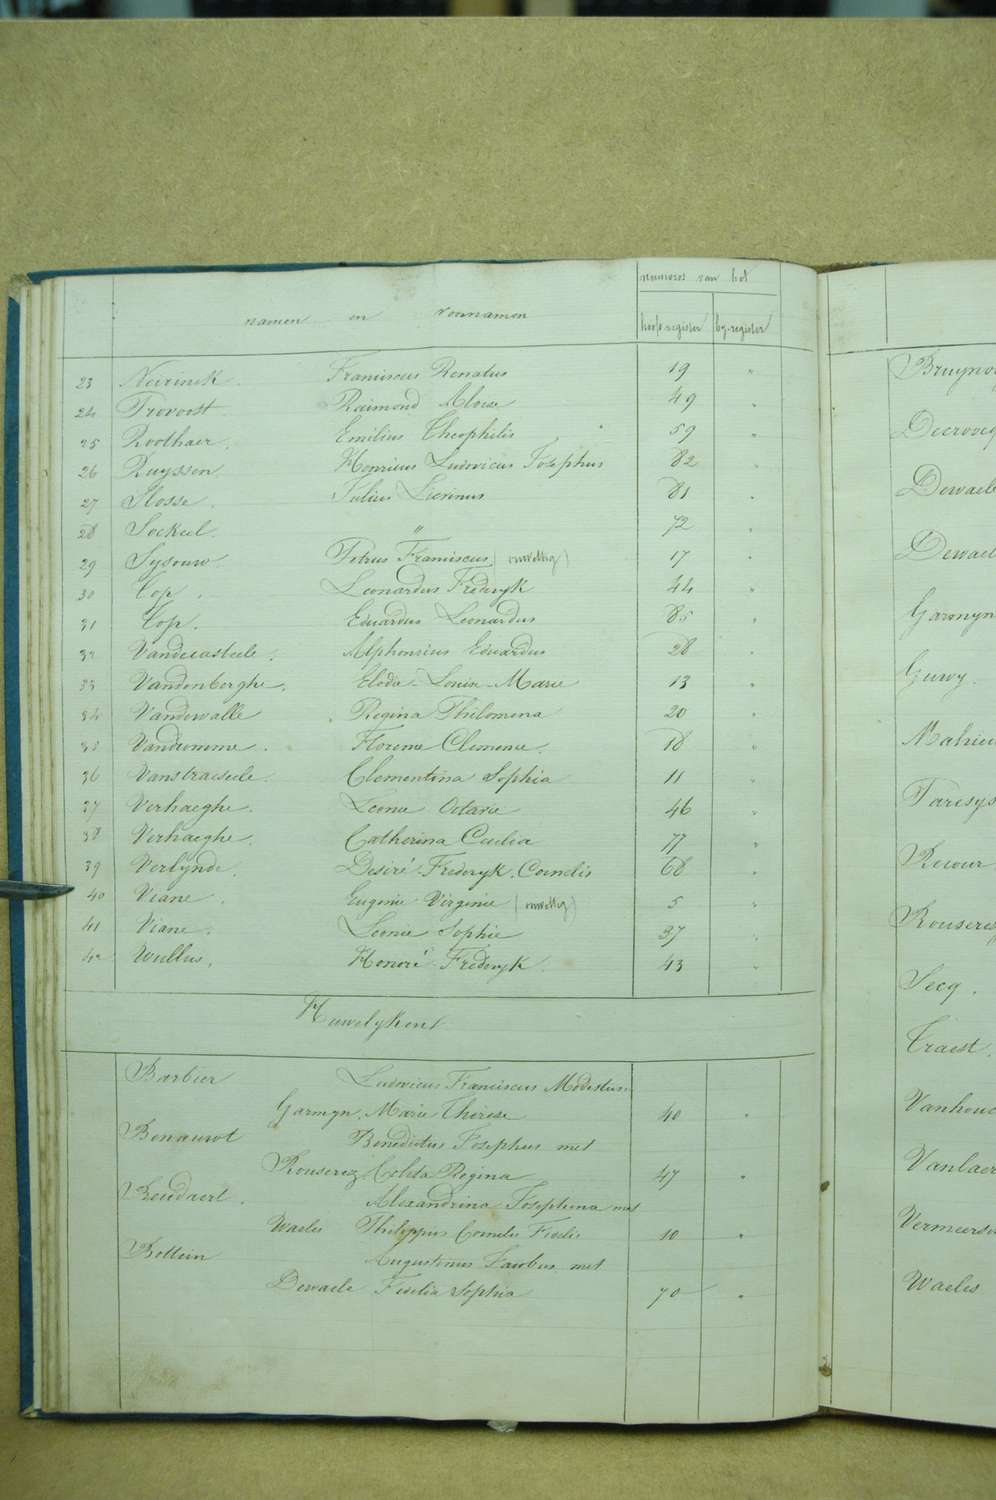 numeros van het
namen en voornamen hoofd-register by-register
23 Neirinck. Franciscus Renatus 19 "
24 Provoost. Raimond Aloise 49 "
25 Roothaer. Emilius Theophilis 59 "
26 Ruyssen. Henricus Ludovicus Josephus 82 "
27 Slosse. Julius Lievinus 81 "
28 Sockeel. " 72 "
29 Sysouw Petrus Franciscus (onwettig) 17 "
30 Top. Leonardus Frederyk 44 "
31 Top. Eduardus Leonardus 85 "
32 Vandecasteele. Alphonsius Eduardus 28 "
33 Vandenberghe. Elodie Louise Marie 13 "
34 Vandewalle Regina Philomena 20 "
35 Vandromme. Florence Clemence. 18 "
36 Vanstraeseele. Clementina Sophia 11 "
37 Verhaeghe. Leonie Octavie 46 "
38 Verhaeghe. Catherina Cecilia 77 "
39 Verlynde. Desiré Frederyk Cornelis 68 "
40 Viane. Eugenie Virginie (onwettig) 5 "
41 Viane. Leonie Sophie 37 "
42 Wullus. Honoré Frederyk. 43 "
Huwelyken
Barbier Ludovicus Franciscus Modestus
Garmyn Marie Thérèse 40 "
Benauwt Benedictus Josephus met
Rouserez Coleta Regina 47 "
Beudaert. Alexandrina Josephina met
Waeles Philippus Cornelis Fidelis 10 "
Bettein Augustinus Jacobus met
Dewaele Fidelia Sophia 70 "
Decrocq
Dewaele
Dewael
Garmyn
Guwy.
Mahieu
Rouserez
Secq.
Traest.
Vanhou
Vanlaer
Vermeersch
Waeles